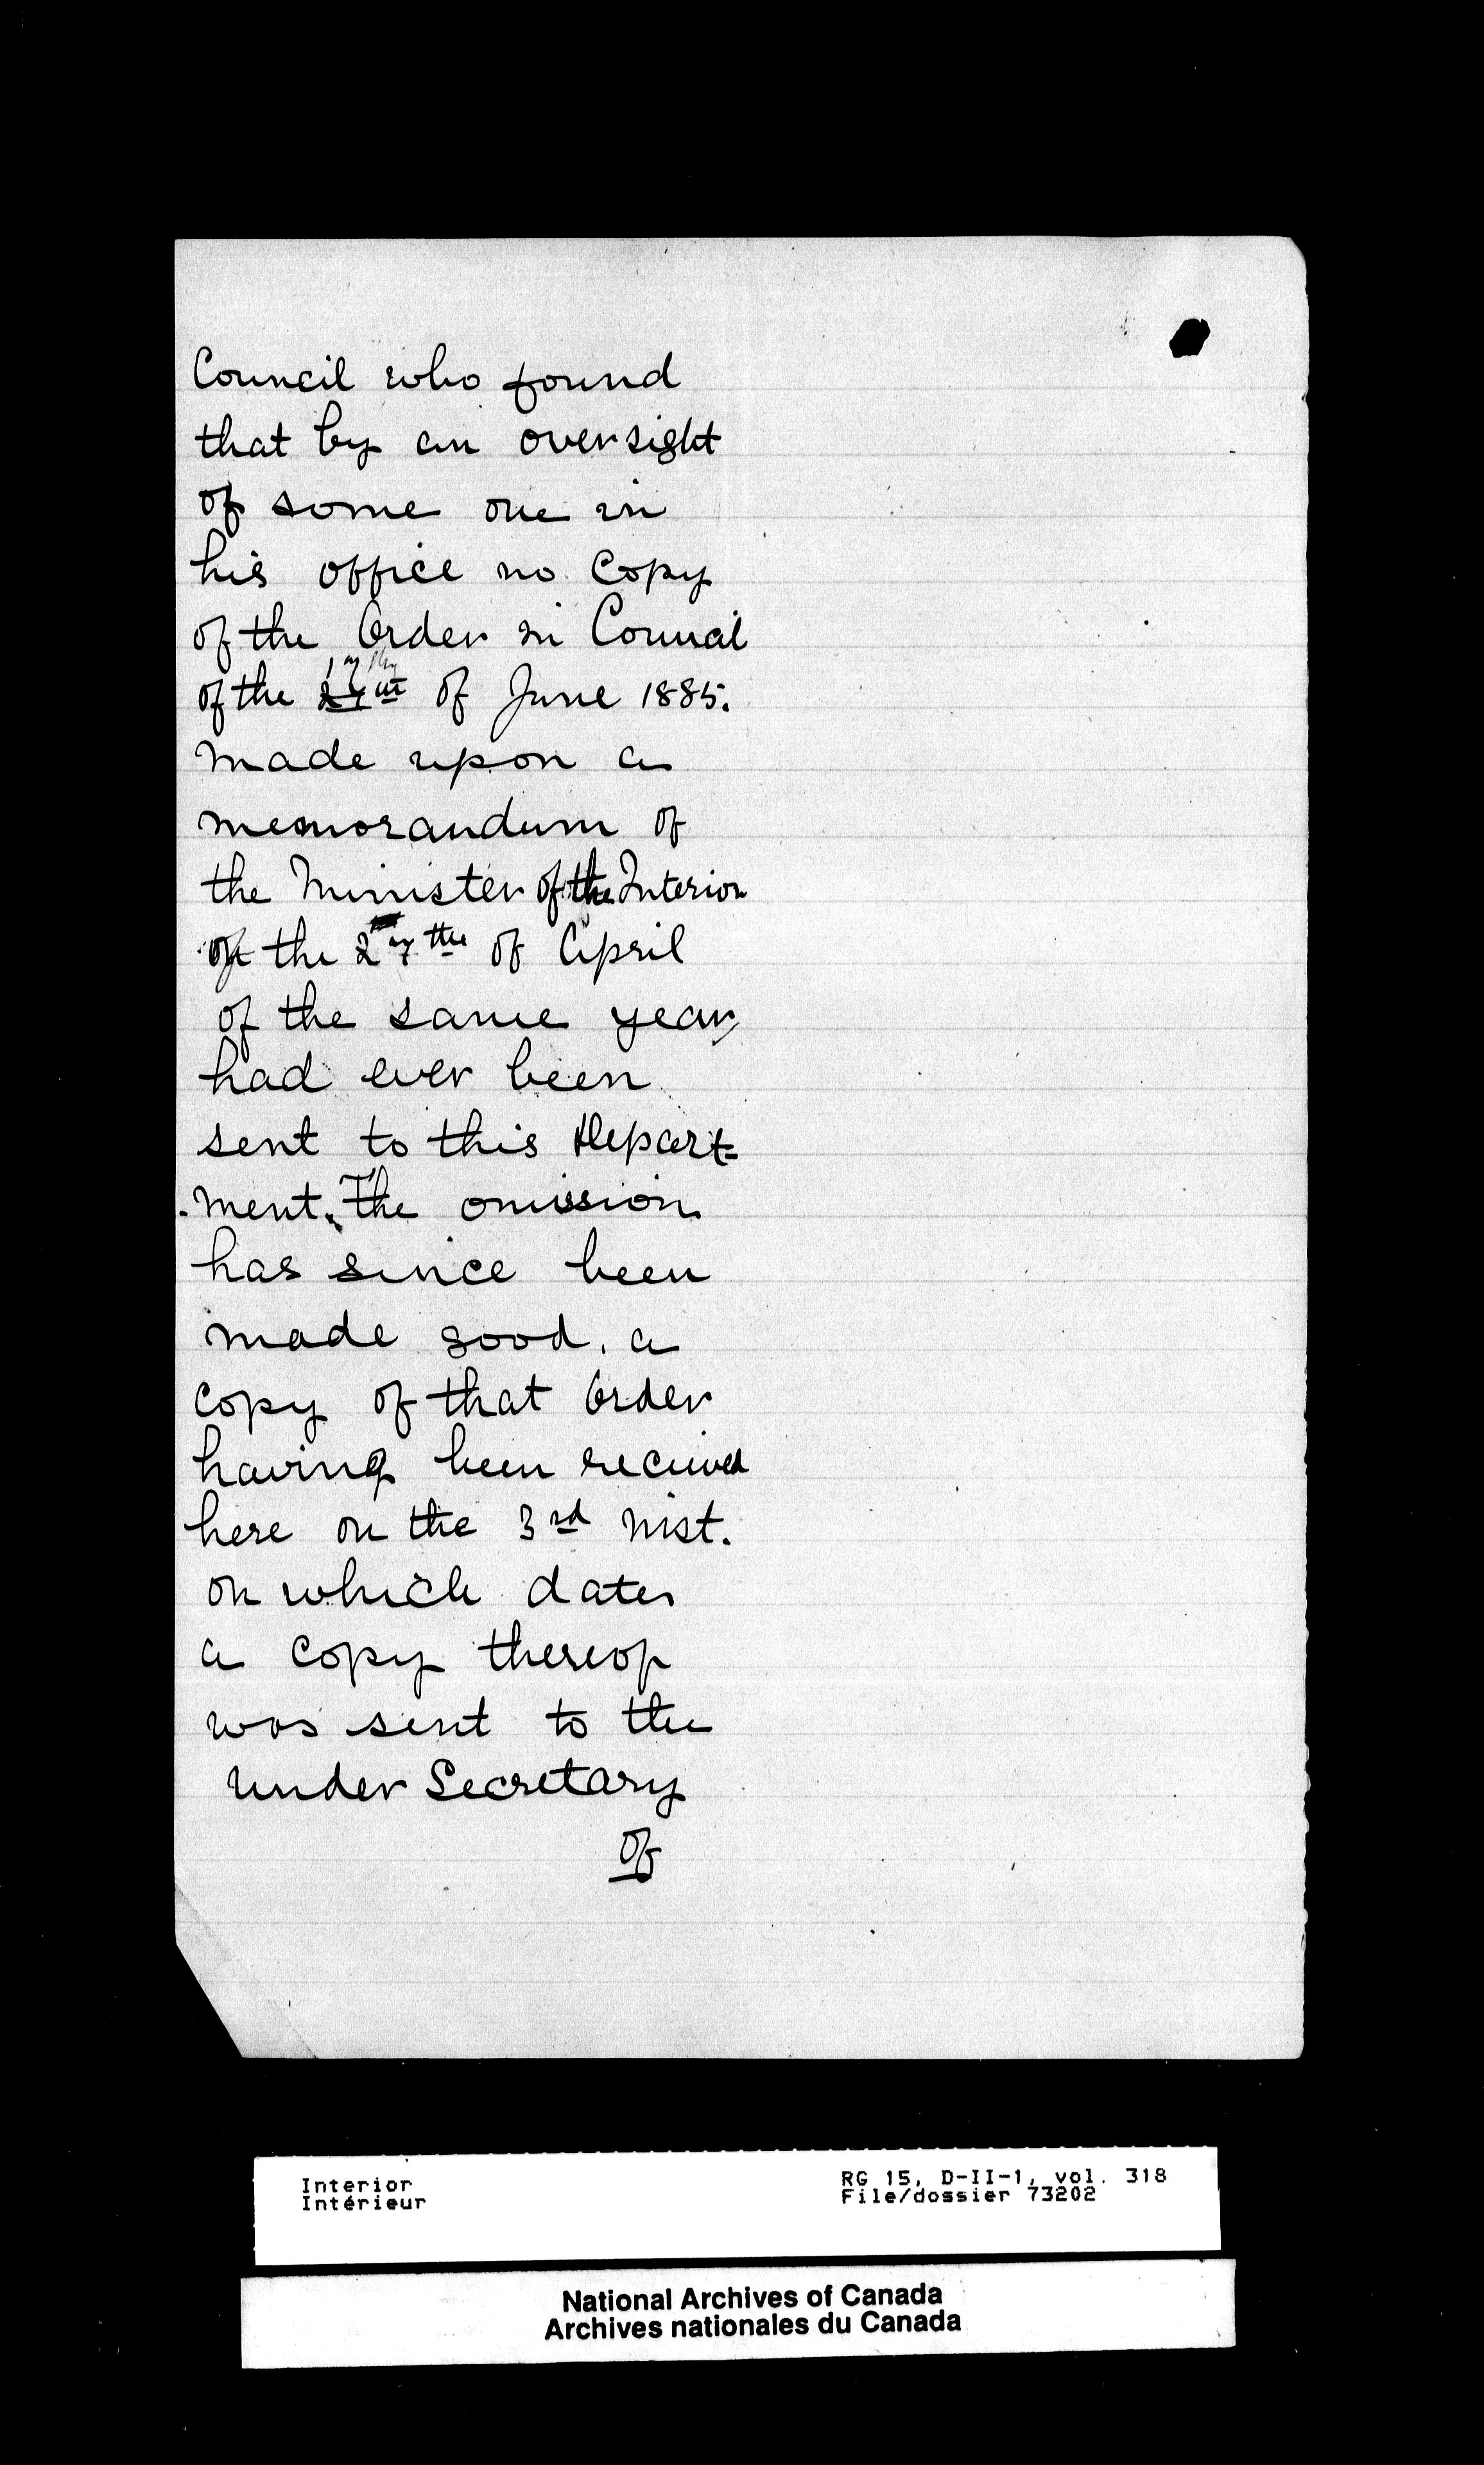 Council who found
that by an oversight
of some one in
his office no copy
of the Order in Council
of the of June 1885.
made upon a
memorandum of
the Minister of the Interior
of the 27th of April
of the same year,
had ever been
sent to this Depart=
-ment. The omission
has since been
made good, a
copy of that Order
having been received
here on the 3rd inst.
on which date
a copy thereof
was sent to the
Under Secretary
of
Interior
Intérieur
RG 15, D-II-1, vol. 318
File/dossier 73202
National Archives of Canada
Archives nationales du Canada